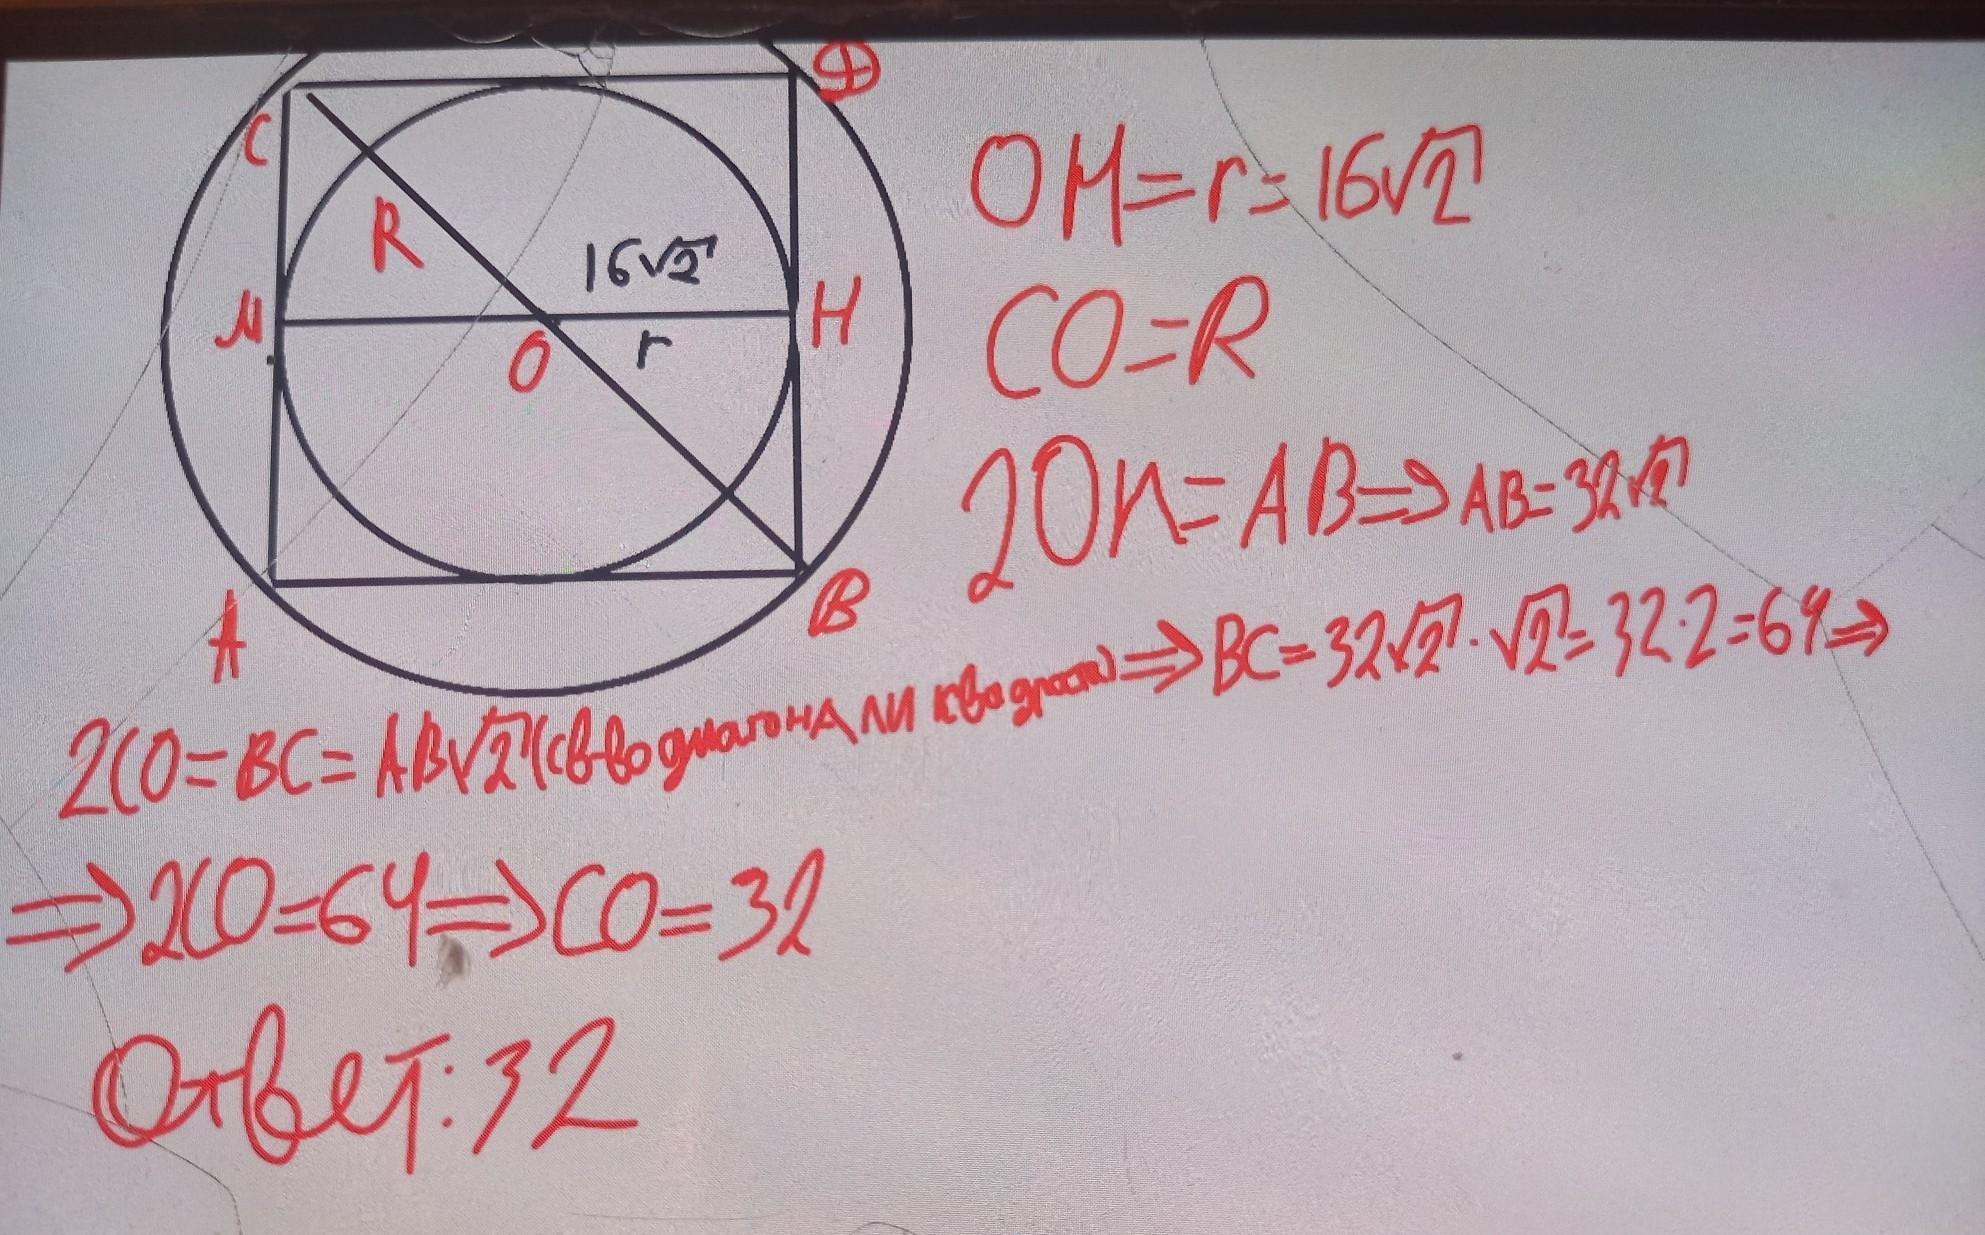 C
Д
R
16√2
М
O
r
H
A
B
OH=r=16√2
CO=R
2OH=AB⇒AB=32√2
2CO=BC=AB√2(св-во диагонали квадрата)⇒BC=32√2·√2=32·2=64⇒
⇒2CO=64⇒CO=32
Ответ:32